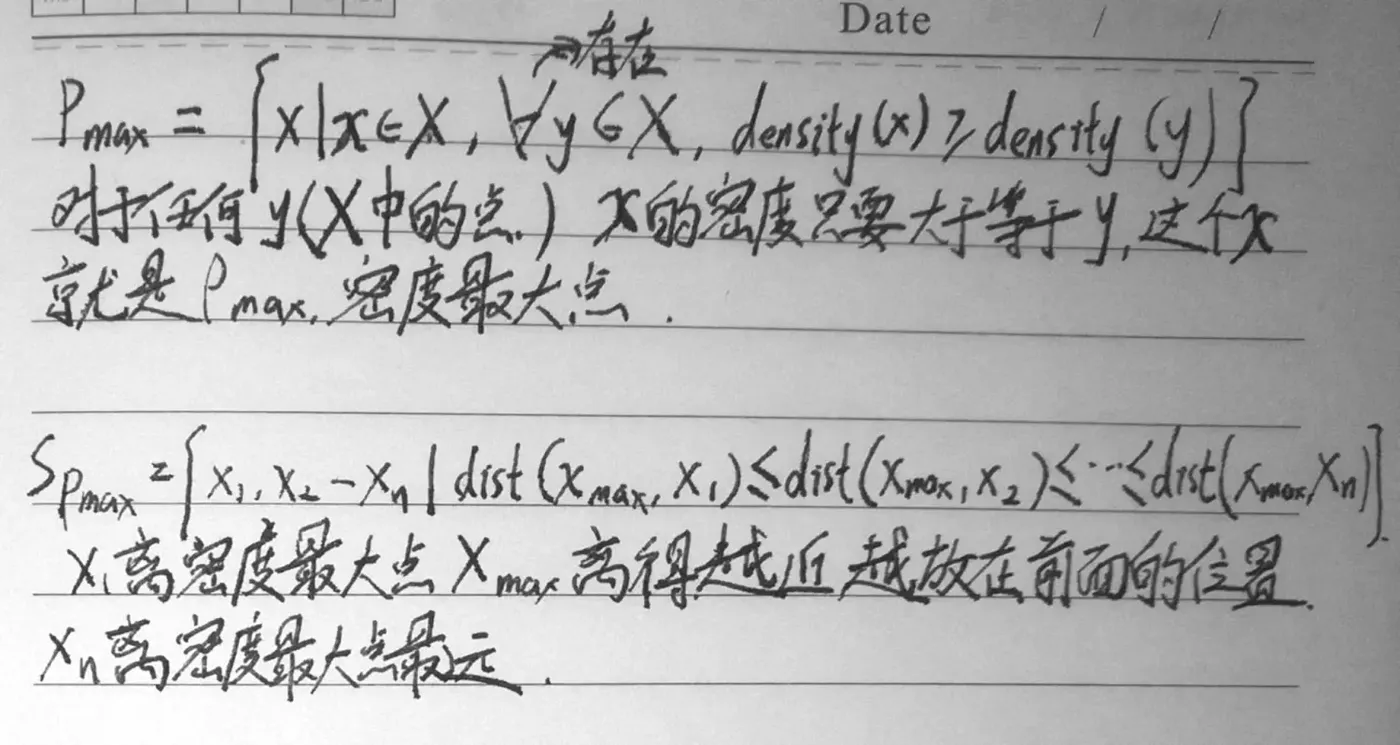 Date / /
→存在
Pmax = {x|x∈X, ∀y∈X, density(x)≥density(y)}
对于任何y(X中的点.) x的密度只要大于等于y,这个x
就是Pmax,密度最大点.
SPmax={x1,x2-xn|dist(xmax,x1)≤dist(xmax,x2)≤…≤dist(xmax,xn)}.
x1离密度最大点xmax离得越近越放在前面的位置.
xn离密度最大点最元.